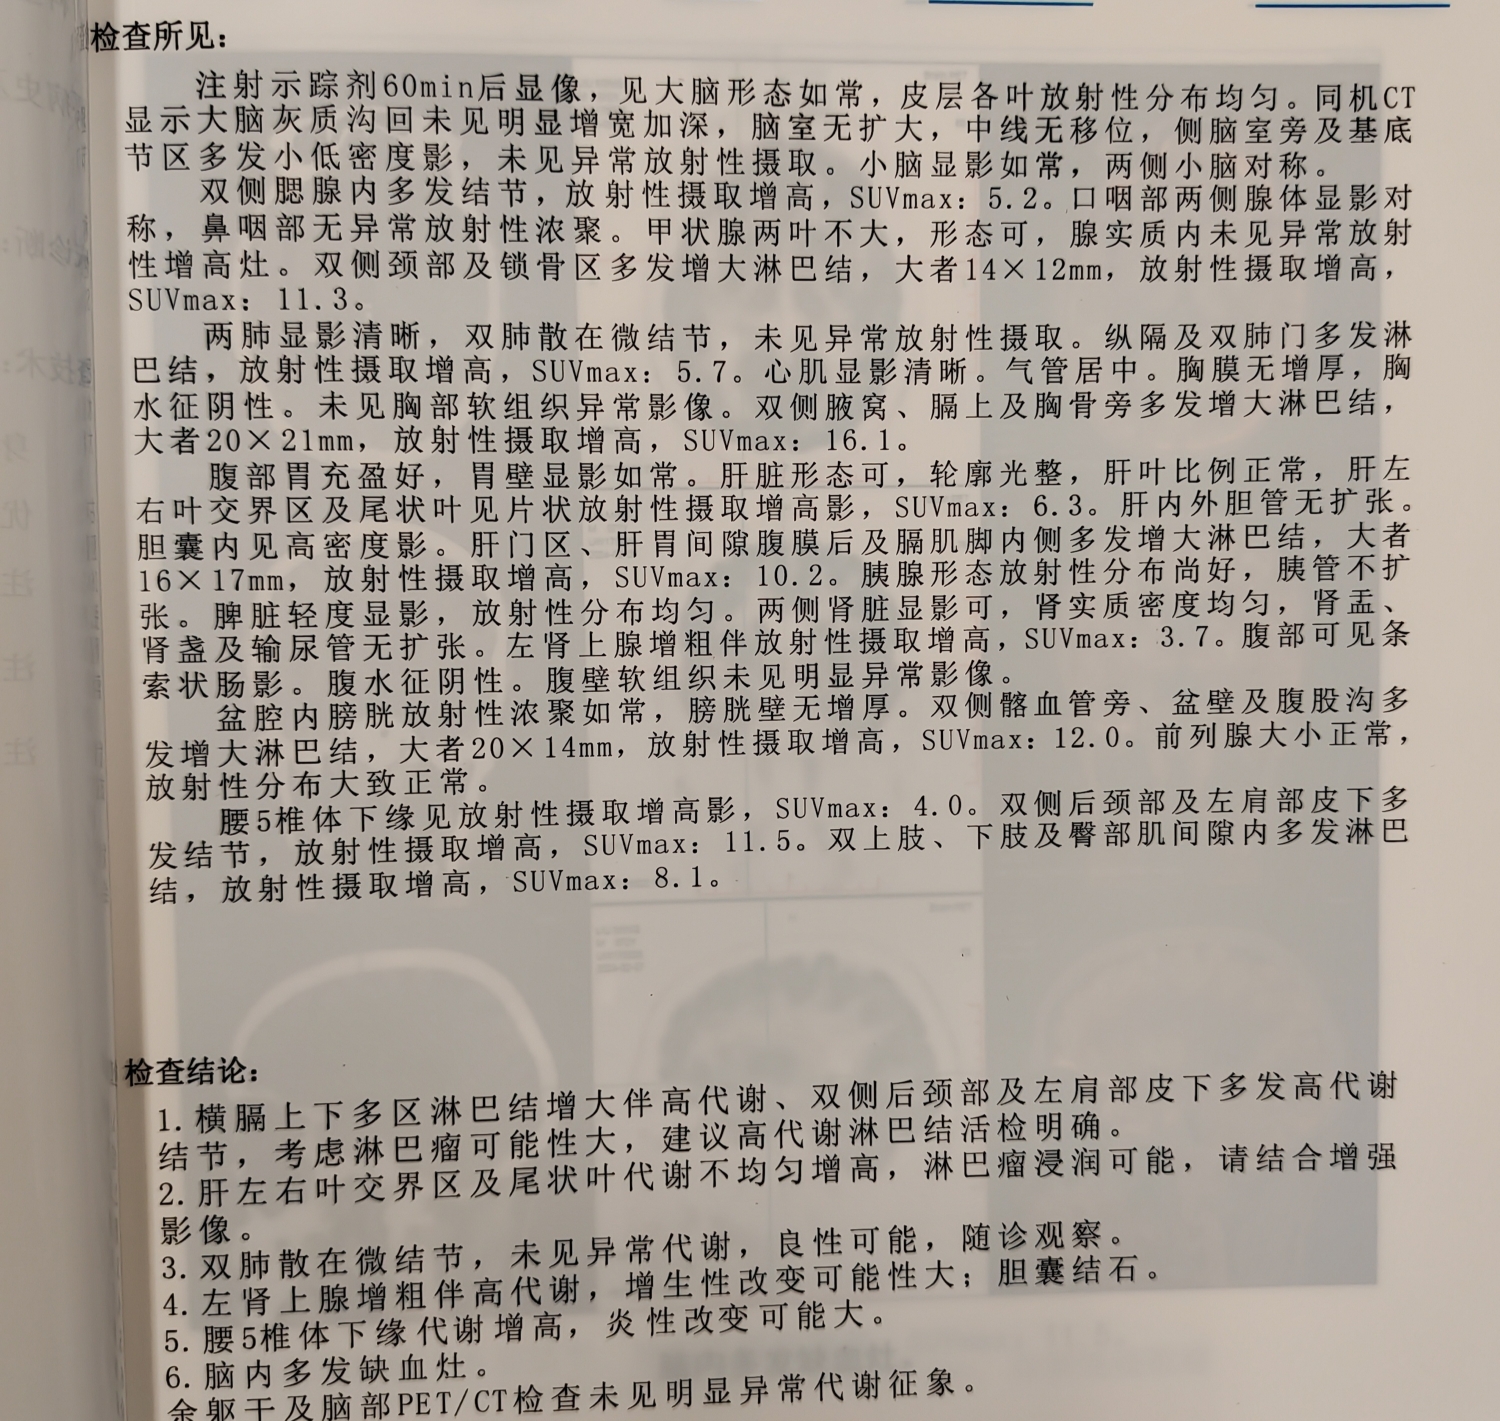 检查所见：
注射示踪剂60min后显像，见大脑形态如常，皮层各叶放射性分布均匀。同机CT
显示大脑灰质沟回未见明显增宽加深，脑室无扩大，中线无移位，侧脑室旁及基底
节区多发小低密度影，未见异常放射性摄取。小脑显影如常，两侧小脑对称。
双侧腮腺内多发结节，放射性摄取增高，SUVmax：5.2。口咽部两侧腺体显影对
称，鼻咽部无异常放射性浓聚。甲状腺两叶不大，形态可，腺实质内未见异常放射
性增高灶。双侧颈部及锁骨区多发增大淋巴结，大者14×12mm，放射性摄取增高，
SUVmax：11.3。
两肺显影清晰，双肺散在微结节，未见异常放射性摄取。纵隔及双肺门多发淋
巴结，放射性摄取增高，SUVmax：5.7。心肌显影清晰。气管居中。胸膜无增厚，胸
水征阴性。未见胸部软组织异常影像。双侧腋窝、膈上及胸骨旁多发增大淋巴结，
大者20×21mm，放射性摄取增高，SUVmax：16.1。
腹部胃充盈好，胃壁显影如常。肝脏形态可，轮廓光整，肝叶比例正常，肝左
右叶交界区及尾状叶见片状放射性摄取增高影，SUVmax：6.3。肝内外胆管无扩张。
胆囊内见高密度影。肝门区、肝胃间隙腹膜后及膈肌脚内侧多发增大淋巴结，大者
16×17mm，放射性摄取增高，SUVmax：10.2。胰腺形态放射性分布尚好，胰管不扩
张。脾脏轻度显影，放射性分布均匀。两侧肾脏显影可，肾实质密度均匀，肾盂、
肾盏及输尿管无扩张。左肾上腺增粗伴放射性摄取增高，SUVmax：3.7。腹部可见条
索状肠影。腹水征阴性。腹壁软组织未见明显异常影像。
盆腔内膀胱放射性浓聚如常，膀胱壁无增厚。双侧髂血管旁、盆壁及腹股沟多
发增大淋巴结，大者20×14mm，放射性摄取增高，SUVmax：12.0。前列腺大小正常，
放射性分布大致正常。
腰5椎体下缘见放射性摄取增高影，SUVmax：4.0。双侧后颈部及左肩部皮下多
发结节，放射性摄取增高，SUVmax：11.5。双上肢、下肢及臀部肌间隙内多发淋巴
结，放射性摄取增高，SUVmax：8.1。
检查结论：
1. 横膈上下多区淋巴结增大伴高代谢、双侧后颈部及左肩部皮下多发高代谢
结节，考虑淋巴瘤可能性大，建议高代谢淋巴结活检明确。
2. 肝左右叶交界区及尾状叶代谢不均匀增高，淋巴瘤浸润可能，请结合增强
影像。
3. 双肺散在微结节，未见异常代谢，良性可能，随诊观察。
4. 左肾上腺增粗伴高代谢，增生性改变可能性大；胆囊结石。
5. 腰5椎体下缘代谢增高，炎性改变可能大。
6. 脑内多发缺血灶。
余躯干及脑部PET/CT检查未见明显异常代谢征象。